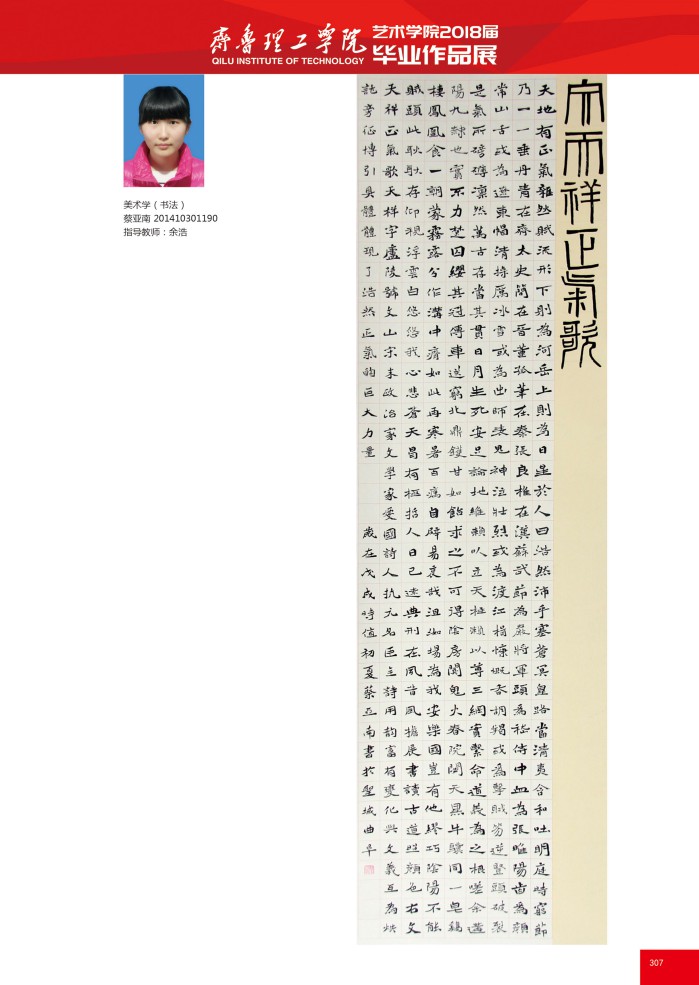 齊魯理工學院
QILU INSTITUTE OF TECHNOLOGY
艺术学院2018届
毕业作品展
美术学(书法)
蔡亚南 201410301190
指导教师:余浩
文天祥正气歌
天地有正氣雜然賦流形下則為河岳上則為日星於人曰浩然沛乎塞蒼冥皇路當清夷含和吐明庭時窮節
乃一一垂丹青在齊太史簡在晉董狐筆在秦張良椎在漢蘇武節為嚴將軍頭為嵇侍中血為張睢陽齒為顏
常山舌或為遼東帽清操厲冰雪或為出師表鬼神泣壯烈或為渡江楫慷慨吞胡羯或為擊賊笏逆豎頭破裂
是氣所磅礴凜然萬古存當其貫日月生死安足論地維賴以立天柱賴以尊三綱實繫命道義為之根嗟余遘
陽九隸也實不力楚囚纓其冠傳車送窮北鼎鑊甘如飴求之不可得陰房闃鬼火春院閟天黑牛驥同一皂鷄
棲鳳凰食一朝蒙霧露分作溝中瘠如此再寒暑百癘自辟易哀哉沮洳場為我安樂國豈有他繆巧陰陽不能
賊顧此耿耿存仰視浮雲白悠悠我心悲蒼天曷有極哲人日已遠典刑在夙昔風檐展書讀古道照顏色右文
天祥正氣歌天祥字廬陵號文山宋末政治家文學家愛國詩人抗元名臣立詩用韵富有變化與文義互為烘
託旁征博引具體體現了浩然正氣的巨大力量 歲在戊戌時值初夏蔡亞南書於聖城曲阜
307